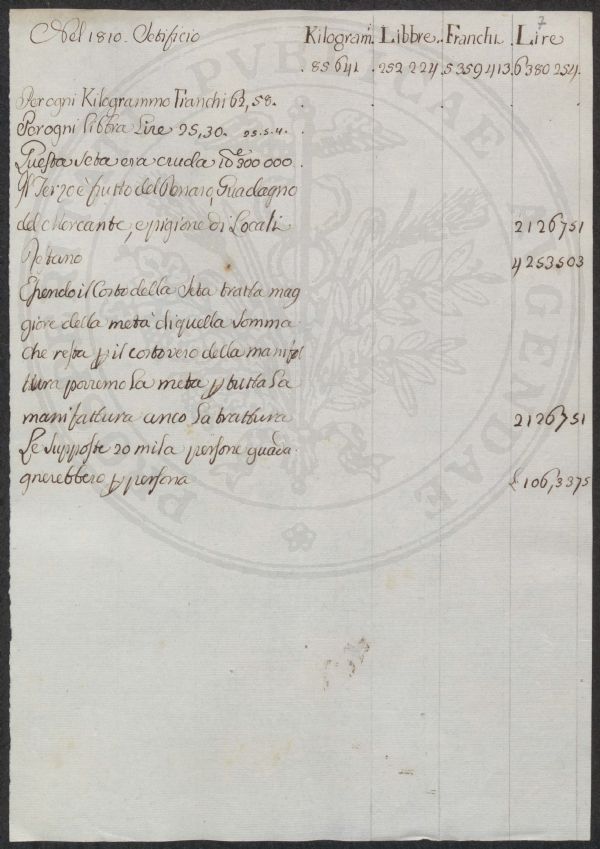 7
Nel 1810. Setificio Kilogram. Libbre. Franchi. Lire
. 85 641 . 252 224 . 5 359 413. 6380 254.
Per ogni Kilogrammo Franchi 62,58.
Per ogni libbra Lire 25,30. 25.5.4.
Questa Seta era cruda 300 000
Il Terzo è frutto del Denaro, Guadagno
del Mercante, e pigione di Locali 2126751
Restano 4253503
Essendo il Costo della Seta tratta mag
giore della metà di quella Somma
che resta p il costo vero della manifat
tura porremo la metà p tutta la
manifattura anco la trattura 2126751
Le supposte 20 mila persone guada-
gnerebbero p persona £ 106,3375
PVBLICAE AGENDAE